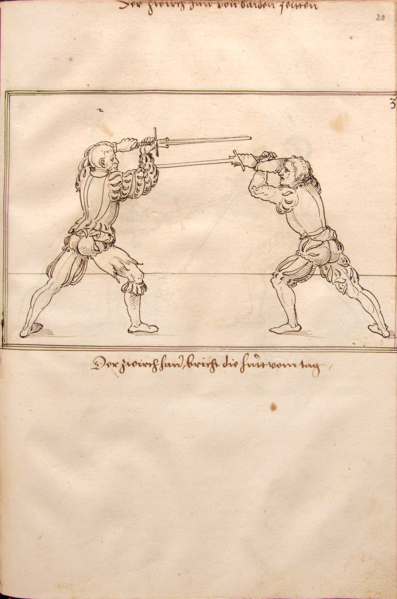 Der zwirch hau von baiden seitten
20
3
Der zwirch hau, bricht die hutt vom tag